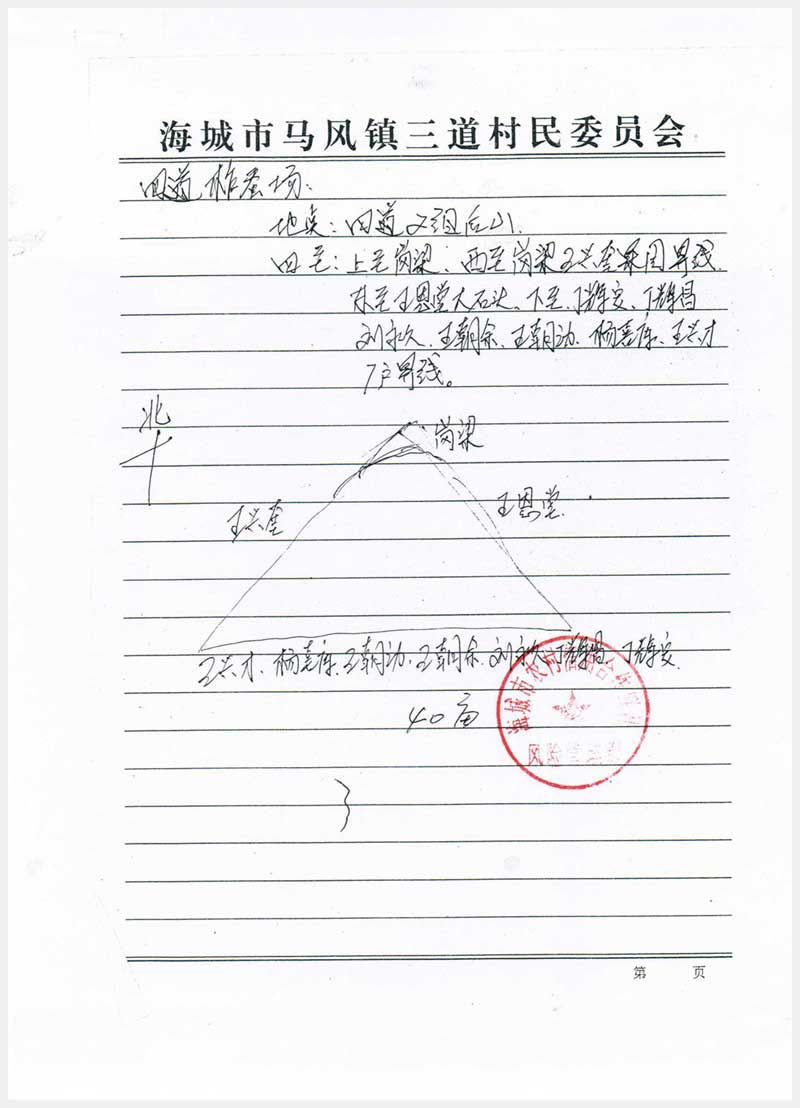 海城市马风镇三道村民委员会
四道柞蚕场:
地点:四道又组后山.
四至:上至岗梁;西至岗梁王兴奎采园界线.
东至王恩堂大石头、下至.丁辉安、丁辉昌
刘永久、王朝余、王朝功、杨喜库、王兴才
7户界线。
北
岗梁
王兴奎
王恩堂.
王兴才、杨喜库、王朝功、王朝余、刘永久、丁辉昌、丁辉安.
40亩
海城市农村信用合作联社
风险管理部
第 页